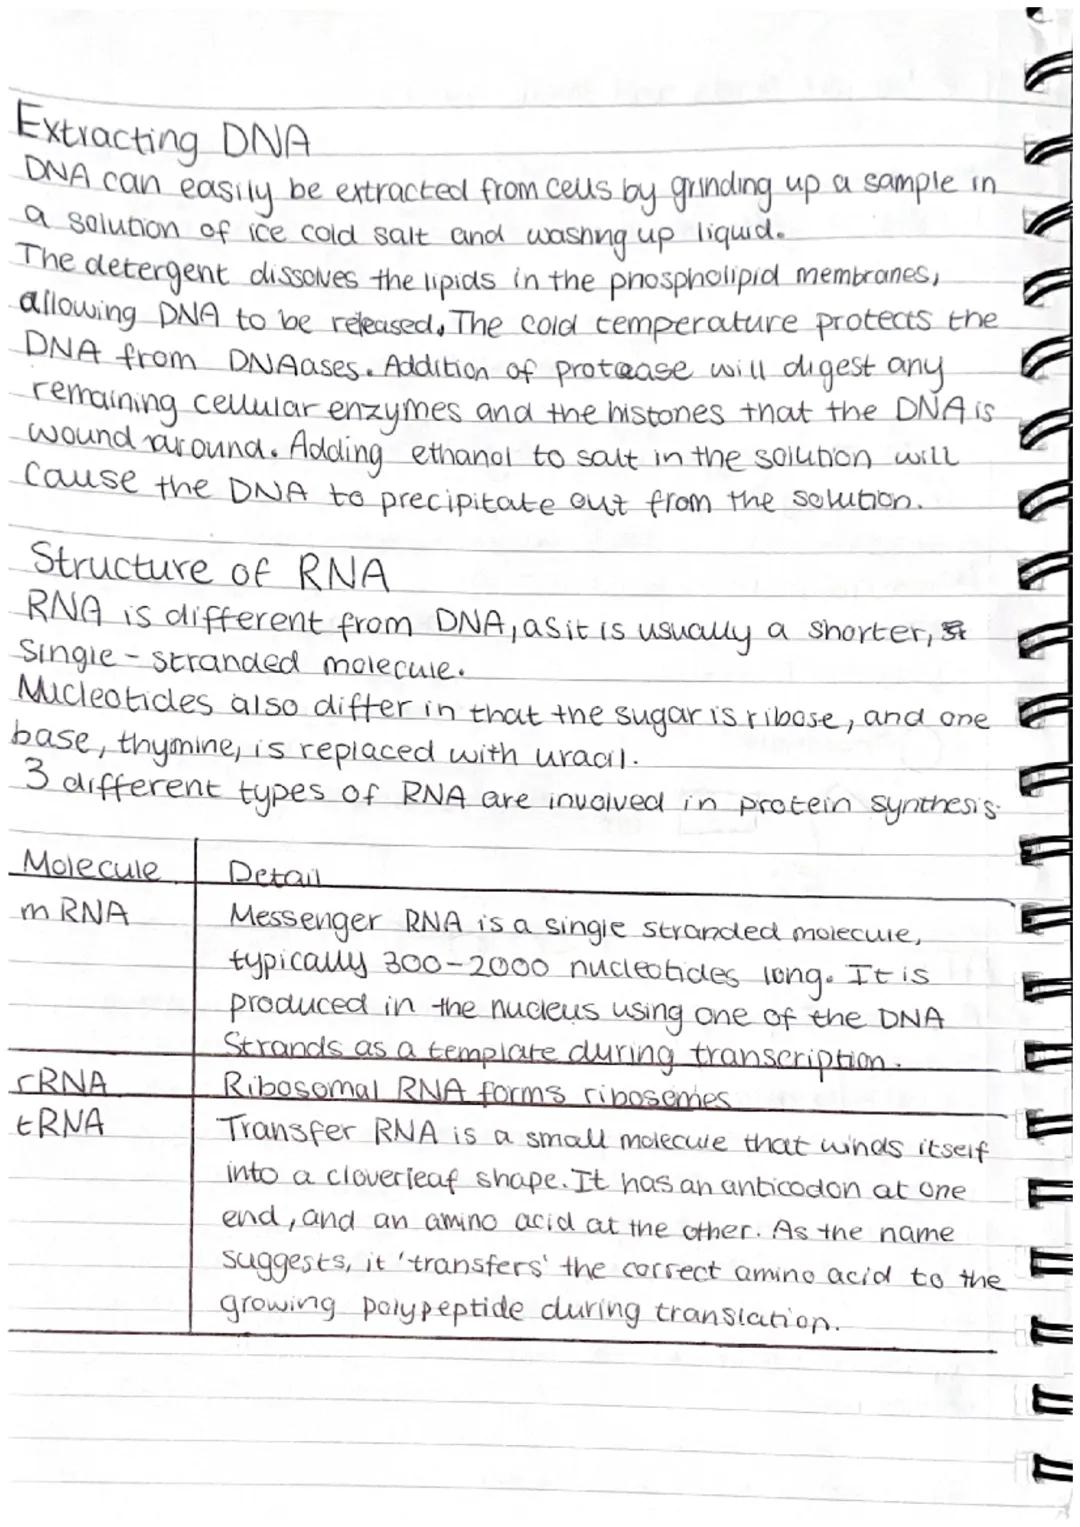 Extracting DNA
DNA can easily be extracted from cells by grinding up a sample in
a solution of ice cold salt and washing up liquid.
The detergent dissolves the lipids in the phospholipid membranes,
allowing DNA to be released. The cold temperature protects the
DNA from DNAases. Addition of protease will digest any
remaining cellular enzymes and the histones that the DNA is
wound around. Adding ethanol to salt in the solution will
cause the DNA to precipitate out from the solution.
Structure of RNA
RNA is different from DNA, as it is usually a shorter,
single-stranded molecule.
Nucleotides also differ in that the sugar is ribose, and one
base, thymine, is replaced with uracil.
3 different types of RNA are involved in protein synthesis.
Molecule Detail
mRNA Messenger RNA is a single stranded molecule,
typically 300-2000 nucleotides long. It is
produced in the nucleus using one of the DNA
Strands as a template during transcription.
rRNA Ribosomal RNA forms ribosomes
tRNA Transfer RNA is a small molecule that winds itself
into a cloverleaf shape. It has an anticodon at one
end, and an amino acid at the other. As the name
suggests, it 'transfers' the correct amino acid to the
growing polypeptide during translation.